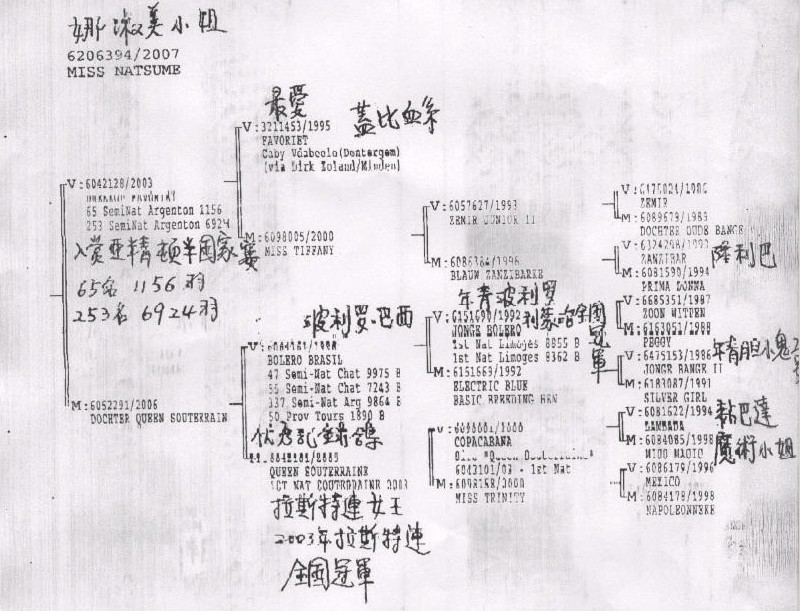 娜淑美小姐
6206394/2007
MISS NATSUME
最愛
蓋比血系
V:3211453/1995
FAVORIET
Gaby Vdabeele(Dentergem)
(via Dirk Zoland/Minden)
V:6042128/2003
65 SemiNat Argenton 1156
253 SemiNat Argenton 6924
入赏亚精頓半国家賽
65名 1156羽
253名 6924羽
M:6098005/2000
MISS TIFFANY
V:6057627/1993
ZEMIR JUNIOR II
BLAUW ZANZIBARKE
ZEMIR
M:6089679/1989
DOCHTER OUDE BANGE
ZANZIBAR
隆利巴
M:6081590/1994
PRIMA DONNA
波利罗.巴西
BOLERO BRASIL
47 Semi-Nat Chat 9975 B
55 Semi-Nat Chat 7243 B
337 Semi-Nat Arg 9864 B
50 Prov Tours 1890 B
M:6052291/2006
DOCHTER QUEEN SOUTERRAIN
QUEEN SOUTERRAINE
拉斯特連女王
2003年拉斯特連
全國冠軍
年青波利罗
全國冠軍
JONGE BOLERO
1st Nat Limoges 8855 B
1st Nat Limoges 8362 B
M:6151669/1992
ELECTRIC BLUE
BASIC BREEDING HEN
COPACABANA
6043101/03 - 1st Nat
MISS TRINITY
V:6685351/1987
ZOON WITTEN
M:6163051/1988
PEGGY
V:6475153/1986
JONGE BANGE II
年青胆小鬼2号
M:6183087/1991
SILVER GIRL
V:6081622/1994
LAMBADA
黏巴達
M:6084085/1998
MISS MAGIC
魔術小姐
V:6086179/1996
MEXICO
M:6084178/1998
NAPOLEONNEKE